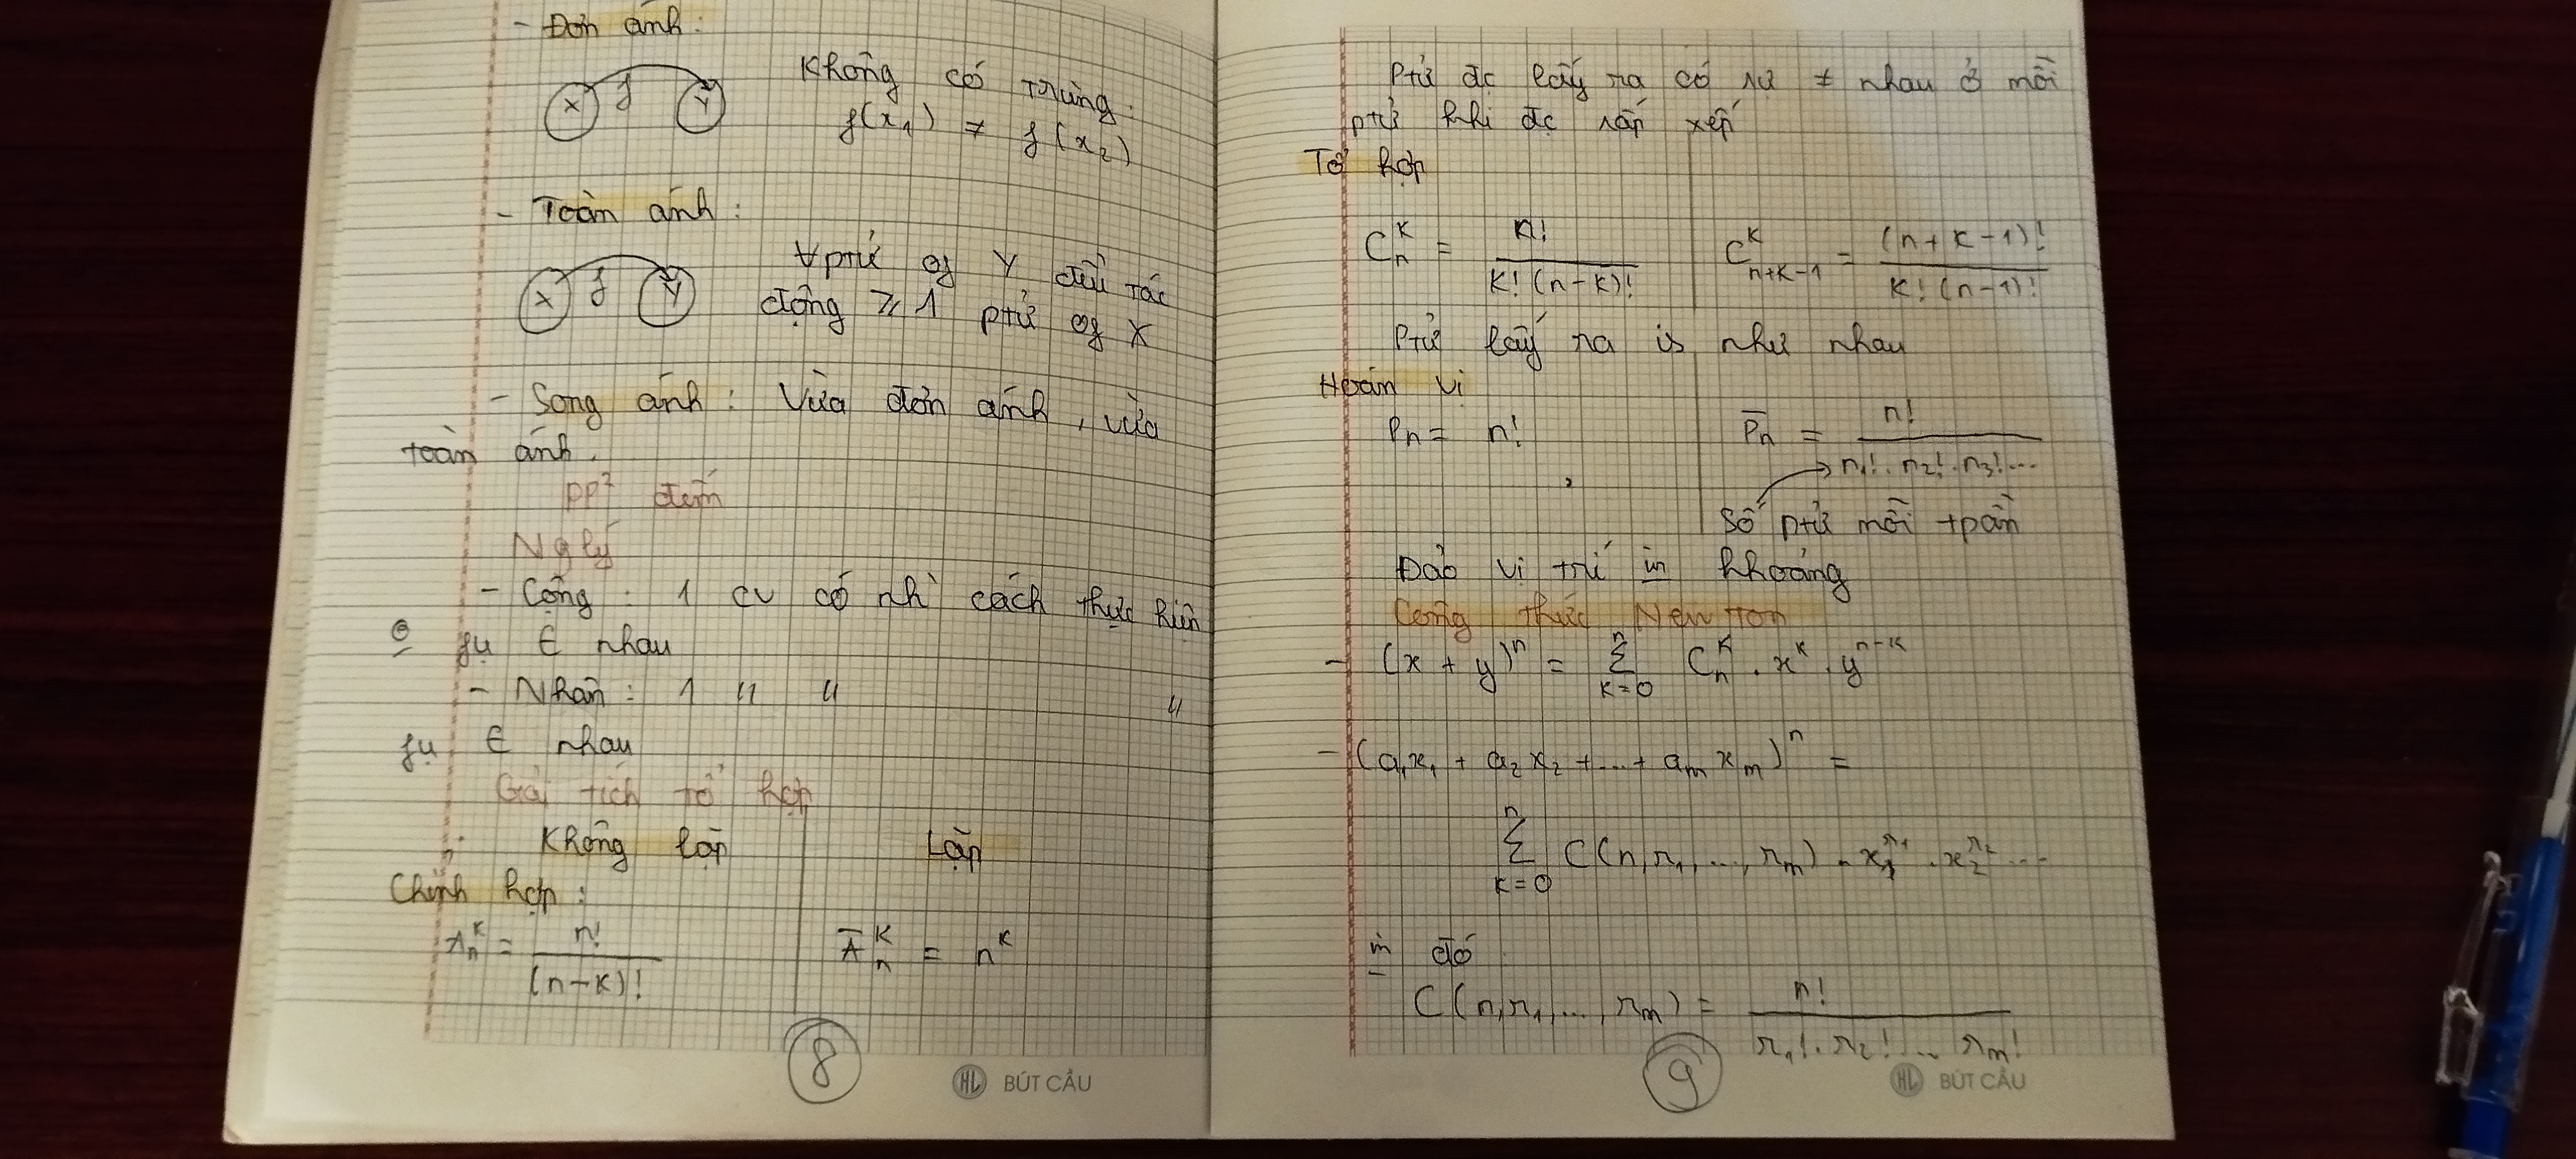 - Đơn ánh:
X f Y
Không có trùng:
f(x₁) ≠ f(x₂)
- Toàn ánh:
X f Y
∀ptử of Y đều tác
động ⩾ 1 ptử of X
- Song ánh: Vừa đơn ánh, vừa
toàn ánh.
PP² đếm
Ng lý
- Cộng: 1 cv có nh` cách thực hiện
θ fụ ∈ nhau
- Nhân: 1 〃 〃 〃
fụ ∈ nhau
Gải tích tổ hợp
Không lặp Lặp
Chỉnh hợp:
Aₙᴷ = n! / (n-K)!
A̅ₙᴷ = nᴷ
8
HL BÚT CẦU
Ptử đc lấy ra có sự ≠ nhau ở mỗi
ptử khi đc sắp xếp
Tổ hợp
Cₙᴷ = n! / K!(n-K)!
Cᴷₙ₊ₖ₋₁ = (n+K-1)! / K!(n-1)!
Ptử lấy ra is như nhau
Hoán vị
Pn = n!
P̅n = n! / n₁!.n₂!.n₃!...
Số ptử mỗi tpần
Đảo vị trí in khoảng
Công thức Newton
- (x + y)ⁿ = Σ (K=0 → n) Cₙᴷ . xᴷ . yⁿ⁻ᴷ
- (a₁x₁ + a₂x₂ + ... + aₘxₘ)ⁿ =
Σ (K=0 → n) C(n,r₁,...,rₘ) . x₁^r₁ . x₂^r₂ ...
in đó
C(n,r₁,...,rₘ) = n! / r₁!.r₂!... rₘ!
9
HL BÚT CẦU